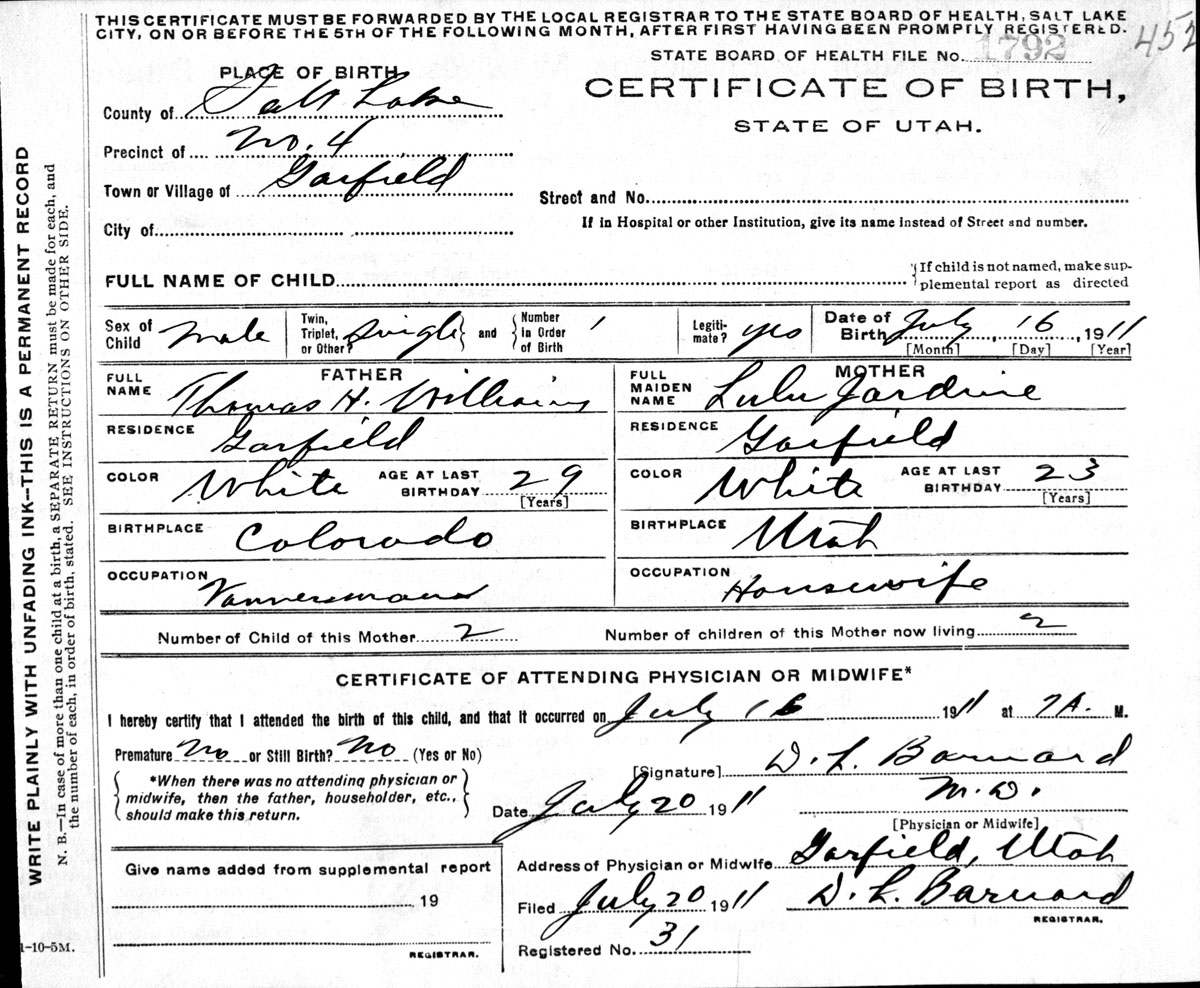 THIS CERTIFICATE MUST BE FORWARDED BY THE LOCAL REGISTRAR TO THE STATE BOARD OF HEALTH, SALT LAKE
CITY, ON OR BEFORE THE 5TH OF THE FOLLOWING MONTH, AFTER FIRST HAVING BEEN PROMPTLY REGISTERED.
452
STATE BOARD OF HEALTH FILE No. 1792
PLACE OF BIRTH
CERTIFICATE OF BIRTH,
STATE OF UTAH.
County of Salt Lake
Precinct of No. 4
Town or Village of Garfield
Street and No.
City of
If in Hospital or other Institution, give its name instead of Street and number.
FULL NAME OF CHILD
{If child is not named, make sup-
plemental report as directed
Sex of Child Male
Twin, Triplet, or Other? Single } and { Number in Order of Birth 1
Legiti-mate? yes
Date of Birth July 16, 1911
[Month] [Day] [Year]
FATHER
FULL NAME Thomas H. Williams
RESIDENCE Garfield
COLOR White AGE AT LAST BIRTHDAY 29
[Years]
BIRTHPLACE Colorado
OCCUPATION
MOTHER
FULL MAIDEN NAME Lulu Jardine
RESIDENCE Garfield
COLOR White AGE AT LAST BIRTHDAY 23
[Years]
BIRTHPLACE Utah
OCCUPATION Housewife
Number of Child of this Mother 2 Number of children of this Mother now living 2
CERTIFICATE OF ATTENDING PHYSICIAN OR MIDWIFE*
I hereby certify that I attended the birth of this child, and that it occurred on July 16 1911 at 7A. M.
Premature No or Still Birth? No (Yes or No)
{ *When there was no attending physician or
midwife, then the father, householder, etc.,
should make this return. }
[Signature] D. L. Barnard
Date July 20 1911 M.D.
[Physician or Midwife]
Address of Physician or Midwife Garfield, Utah
Filed July 20 1911 D. L. Barnard
REGISTRAR.
Registered No. 31
Give name added from supplemental report
19
REGISTRAR.
WRITE PLAINLY WITH UNFADING INK--THIS IS A PERMANENT RECORD
N. B.—In case of more than one child at a birth, a SEPARATE RETURN must be made for each, and
the number of each, in order of birth, stated. SEE INSTRUCTIONS ON OTHER SIDE.
1-10-5M.